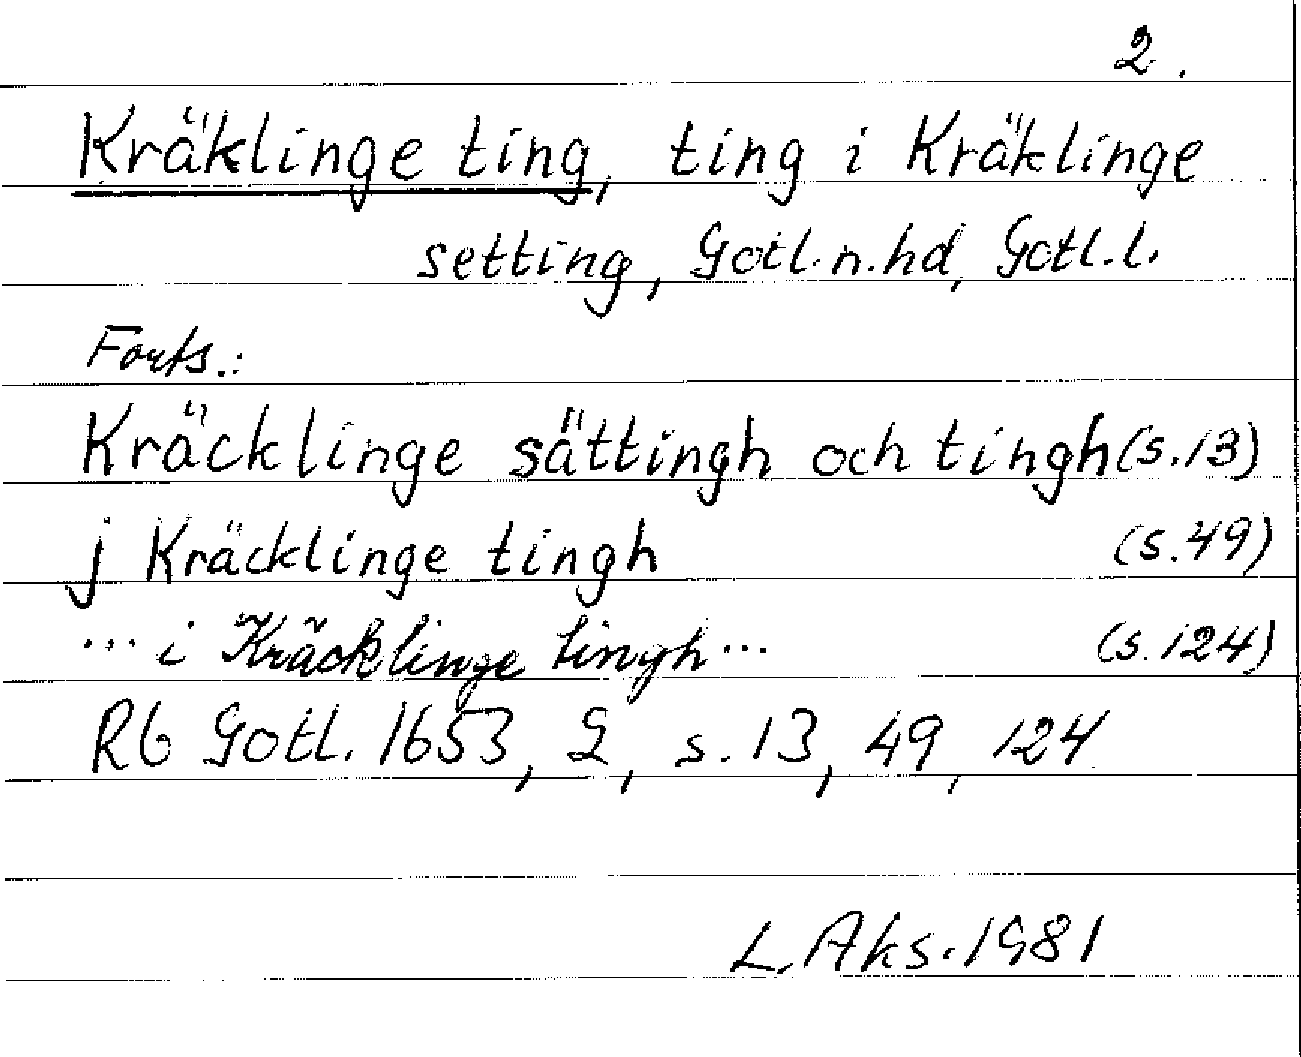 2.
Kräklinge ting, ting i Kräklinge
setting, Gotl.n.hd, Gotl.l.
Forts.:
Kräcklinge sättingh och tingh (s.13)
j Kräcklinge tingh (s.49)
... i Kräcklinge tingh ... (s.124)
Rb Gotl. 1653, 2, s. 13, 49, 124
L. Aks. 1981